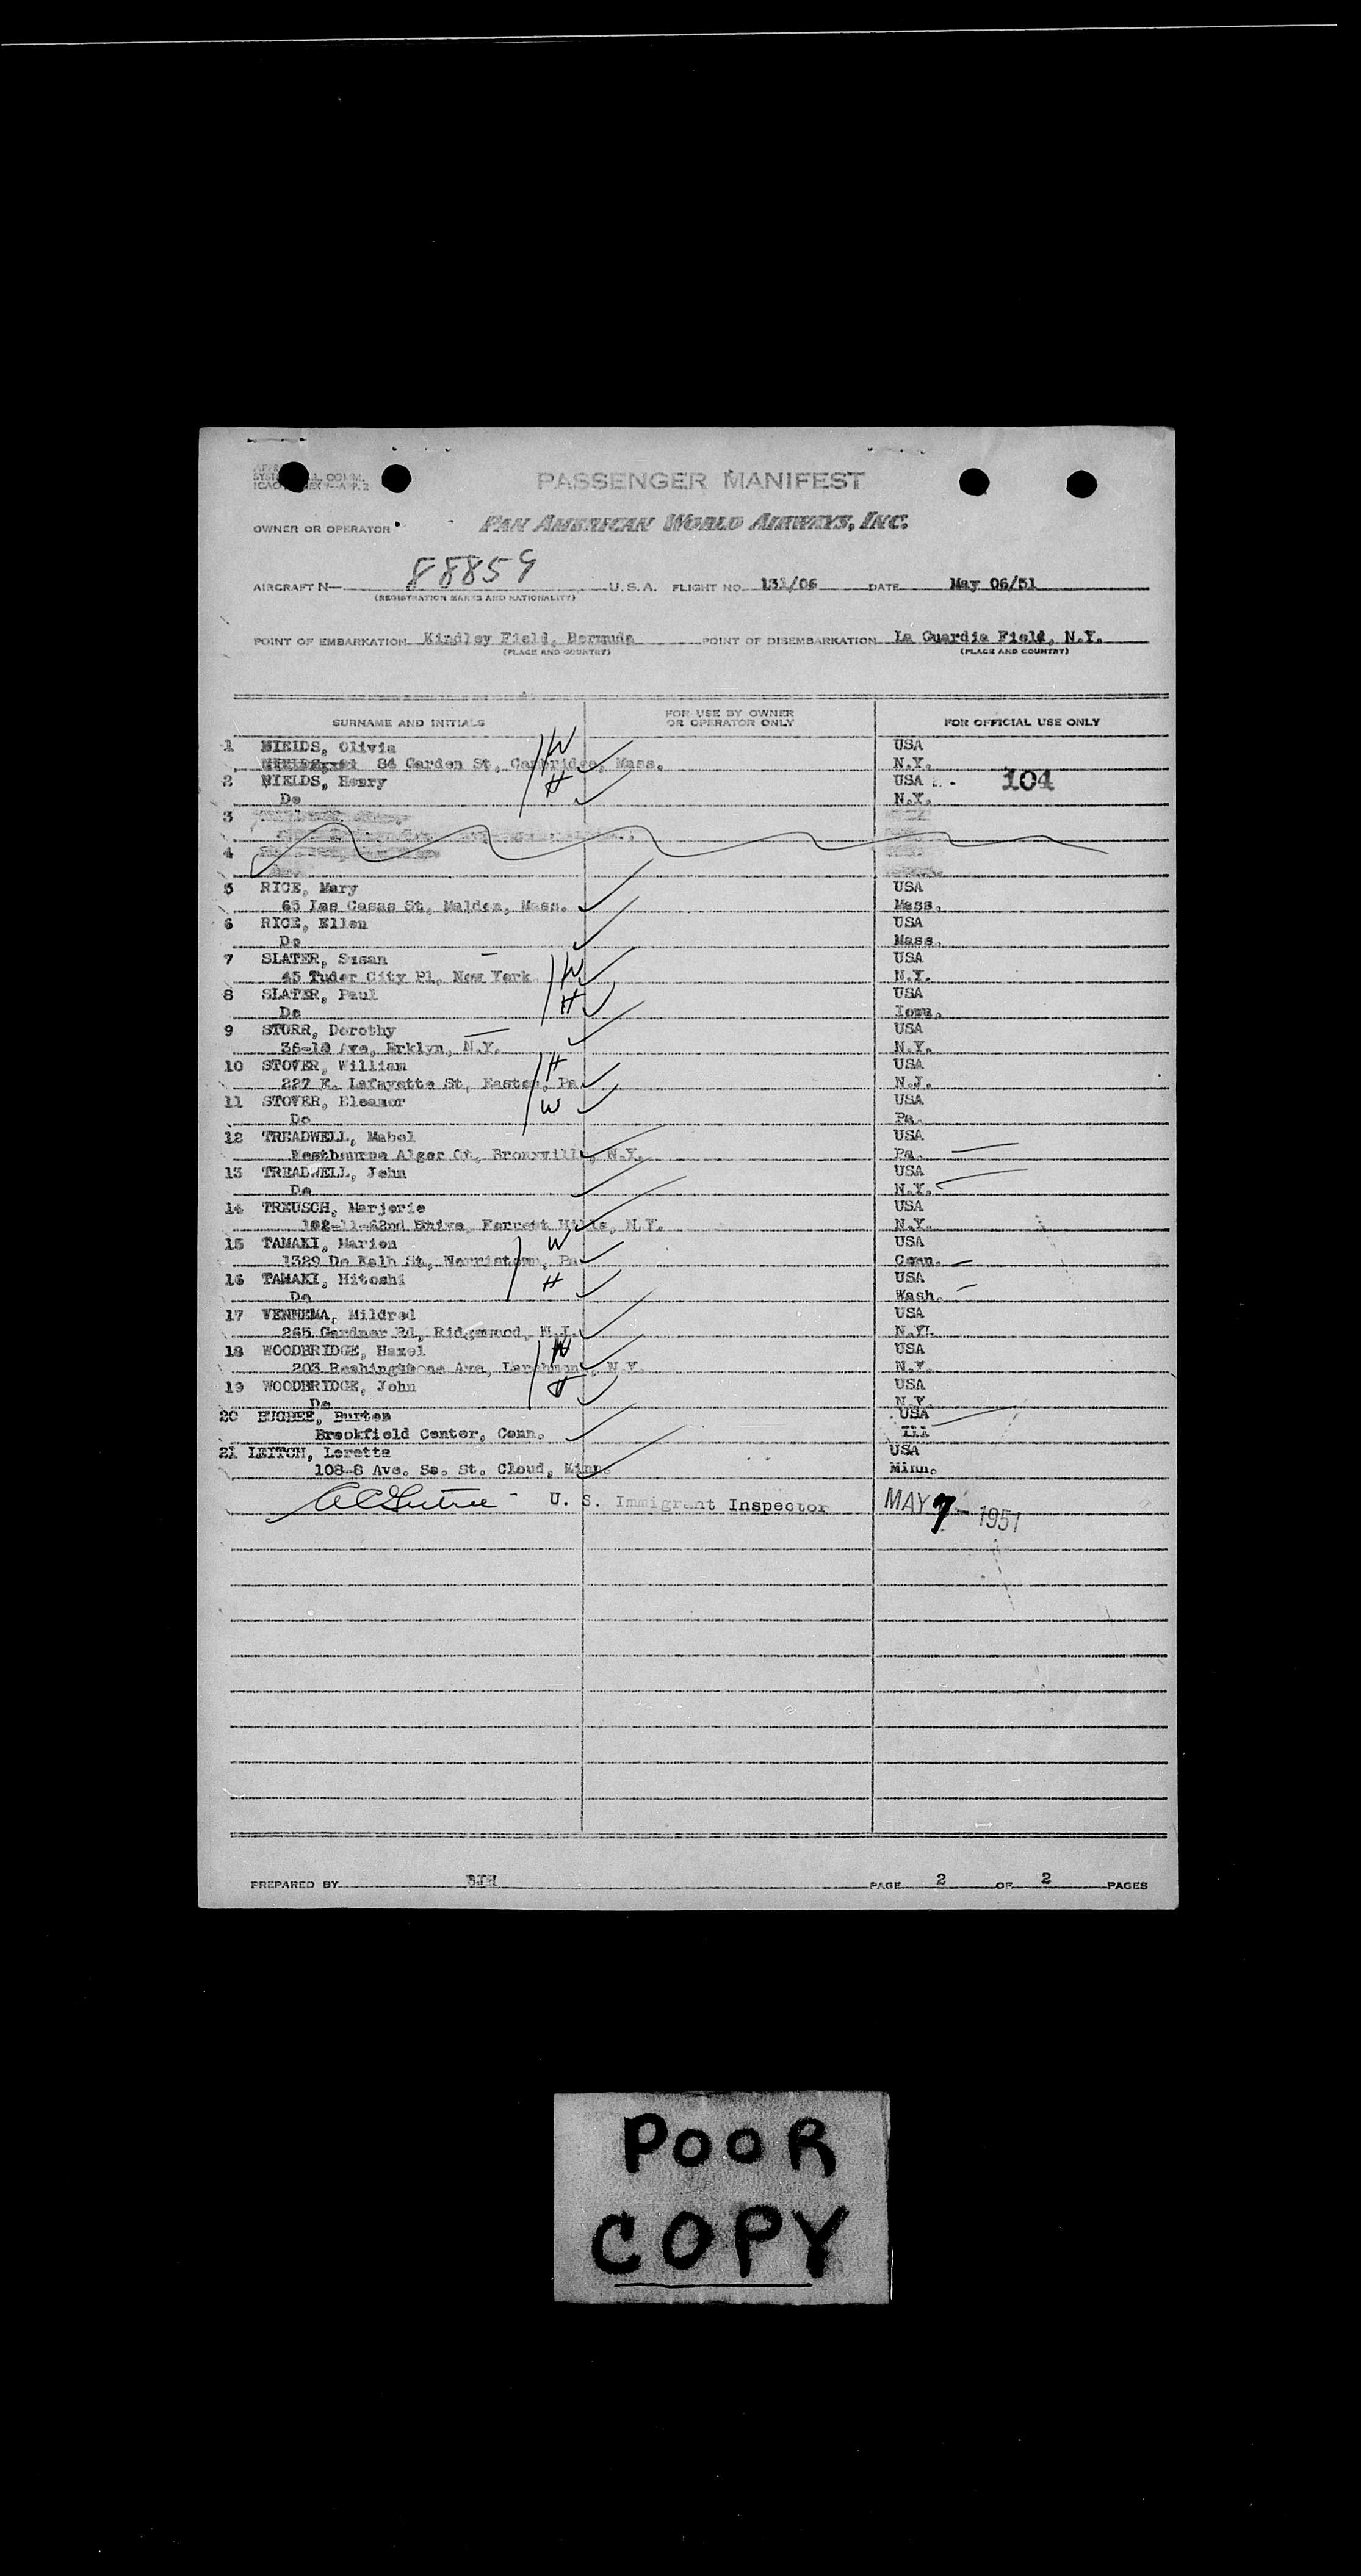 PASSENGER MANIFEST
OWNER OR OPERATOR PAN AMERICAN WORLD AIRWAYS, INC.
AIRCRAFT N— 88859 U.S.A. FLIGHT NO. 131/06 DATE May 06/51
(REGISTRATION MARKS AND NATIONALITY)
POINT OF EMBARKATION Kindley Field, Bermuda POINT OF DISEMBARKATION La Guardia Field, N.Y.
(PLACE AND COUNTRY) (PLACE AND COUNTRY)
SURNAME AND INITIALS FOR USE BY OWNER OR OPERATOR ONLY FOR OFFICIAL USE ONLY
1 NIELDS, Olivia W USA
84 Garden St, Cambridge, Mass. N.Y.
2 NIELDS, Henry H USA 104
Do N.Y.
3
4
5 RICE, Mary USA
65 Las Casas St, Malden, Mass. Mass.
6 RICE, Ellen USA
Do Mass.
7 SLATER, Susan W USA
45 Tudor City Pl, New York N.Y.
8 SLATER, Paul H USA
Do Iowa.
9 STORR, Dorothy USA
36-10 Ave, Brklyn, N.Y. N.Y.
10 STOVER, William H USA
227 E. Lafayette St, Easton, Pa. N.J.
11 STOVER, Eleanor W USA
Do Pa.
12 TREADWELL, Mabel USA
Westbourne Alger Ct, Bronxville, N.Y. Pa.
13 TREADWELL, John USA
Do N.Y.
14 TREUSCH, Marjorie USA
Forrest Hills, N.Y. N.Y.
15 TAMAKI, Marion W USA
1329 De Kalb St, Norristown, Pa Conn.
16 TAMAKI, Hitoshi H USA
Do Wash.
17 VENNEMA, Mildred USA
265 Gardner Rd, Ridgewood, N.J. N.Y.
18 WOODBRIDGE, Hazel W USA
203 Ave, Larchmont, N.Y. N.Y.
19 WOODBRIDGE, John H USA
Do N.Y.
20 BUGBEE, Burton USA
Brookfield Center, Conn. Ill
21 LEITCH, Loretta USA
108-8 Ave. So. St. Cloud, Minn. Minn.
U. S. Immigrant Inspector MAY 7 - 1951
PREPARED BY BJH PAGE 2 OF 2 PAGES
POOR
COPY